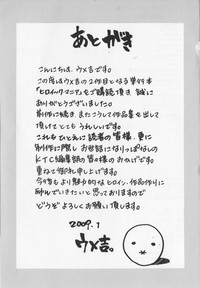 あとがき
こんにちは、ウメ吉です。
この度はウメ吉の2作目となる単行本
「ヒロイックマニア」をご購読頂き 誠に
ありがとうございました。
前作に続き、またこうして作品集を出して
頂けてとても うれしいです。
これもひとえに読者の皆様、更に
制作に際し お世話になりっぱなしの
KTC編集部の皆々様のおかげです。
重ねて御礼申し上げます。
今後もより魅力的なヒロイン、作品作りに
励んでいきたいと思っておりますので
どうぞよろしくお願い致します。
2009.1
ウメ吉。